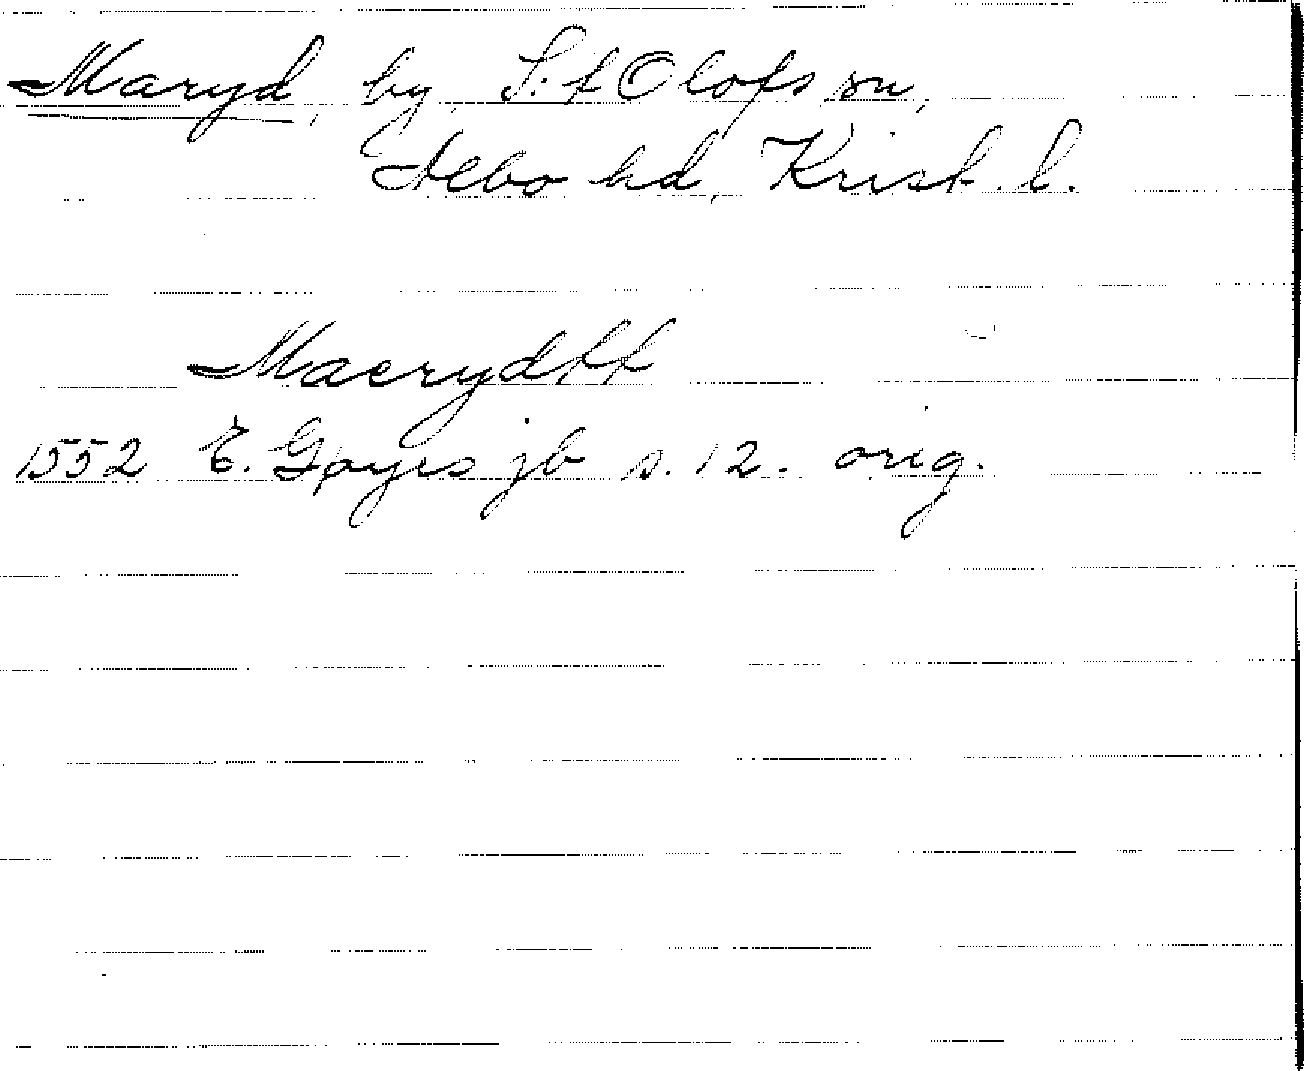 Maryd, by, S:t Olofs sn,
Jebo hd, Krist. l.
Maerydtt
1552 E. Gpyrs jb s. 12. orig.